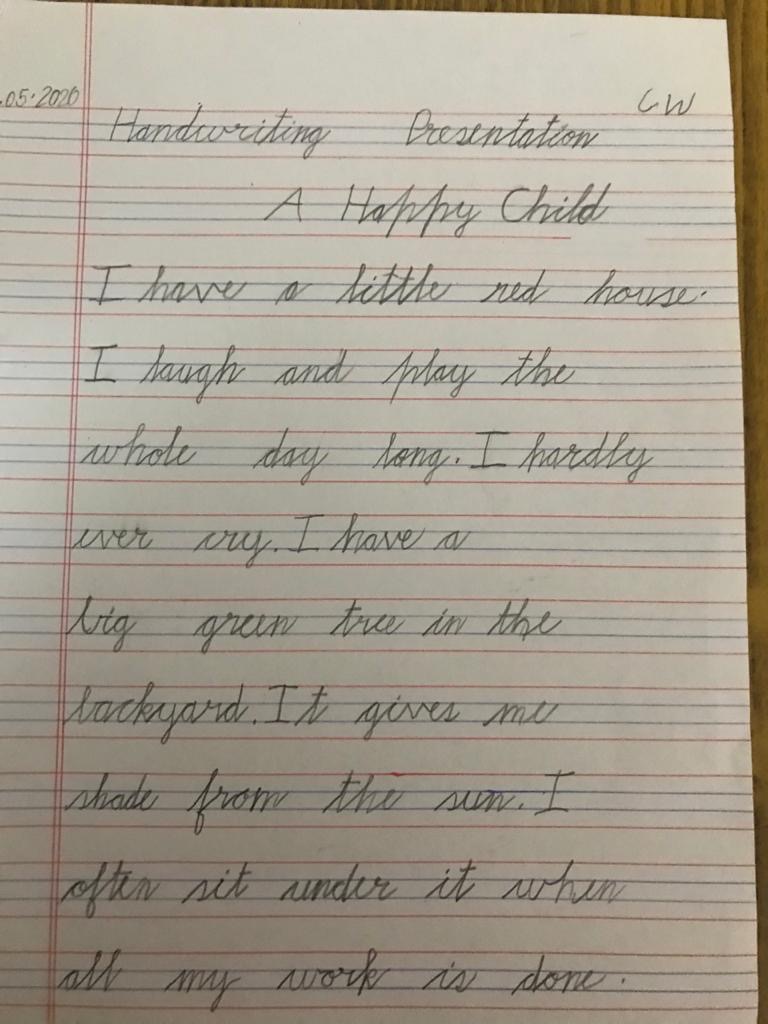 .05.2020
CW
Handwriting Presentation
A Happy Child
I have a little red house.
I laugh and play the
whole day long. I hardly
ever cry. I have a
big green tree in the
backyard. It gives me
shade from the sun. I
often sit under it when
all my work is done.